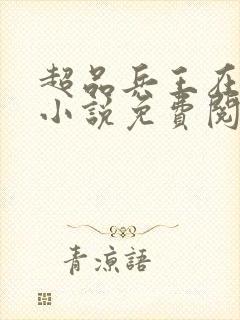 超品兵王在
小說免費閱
青涼語